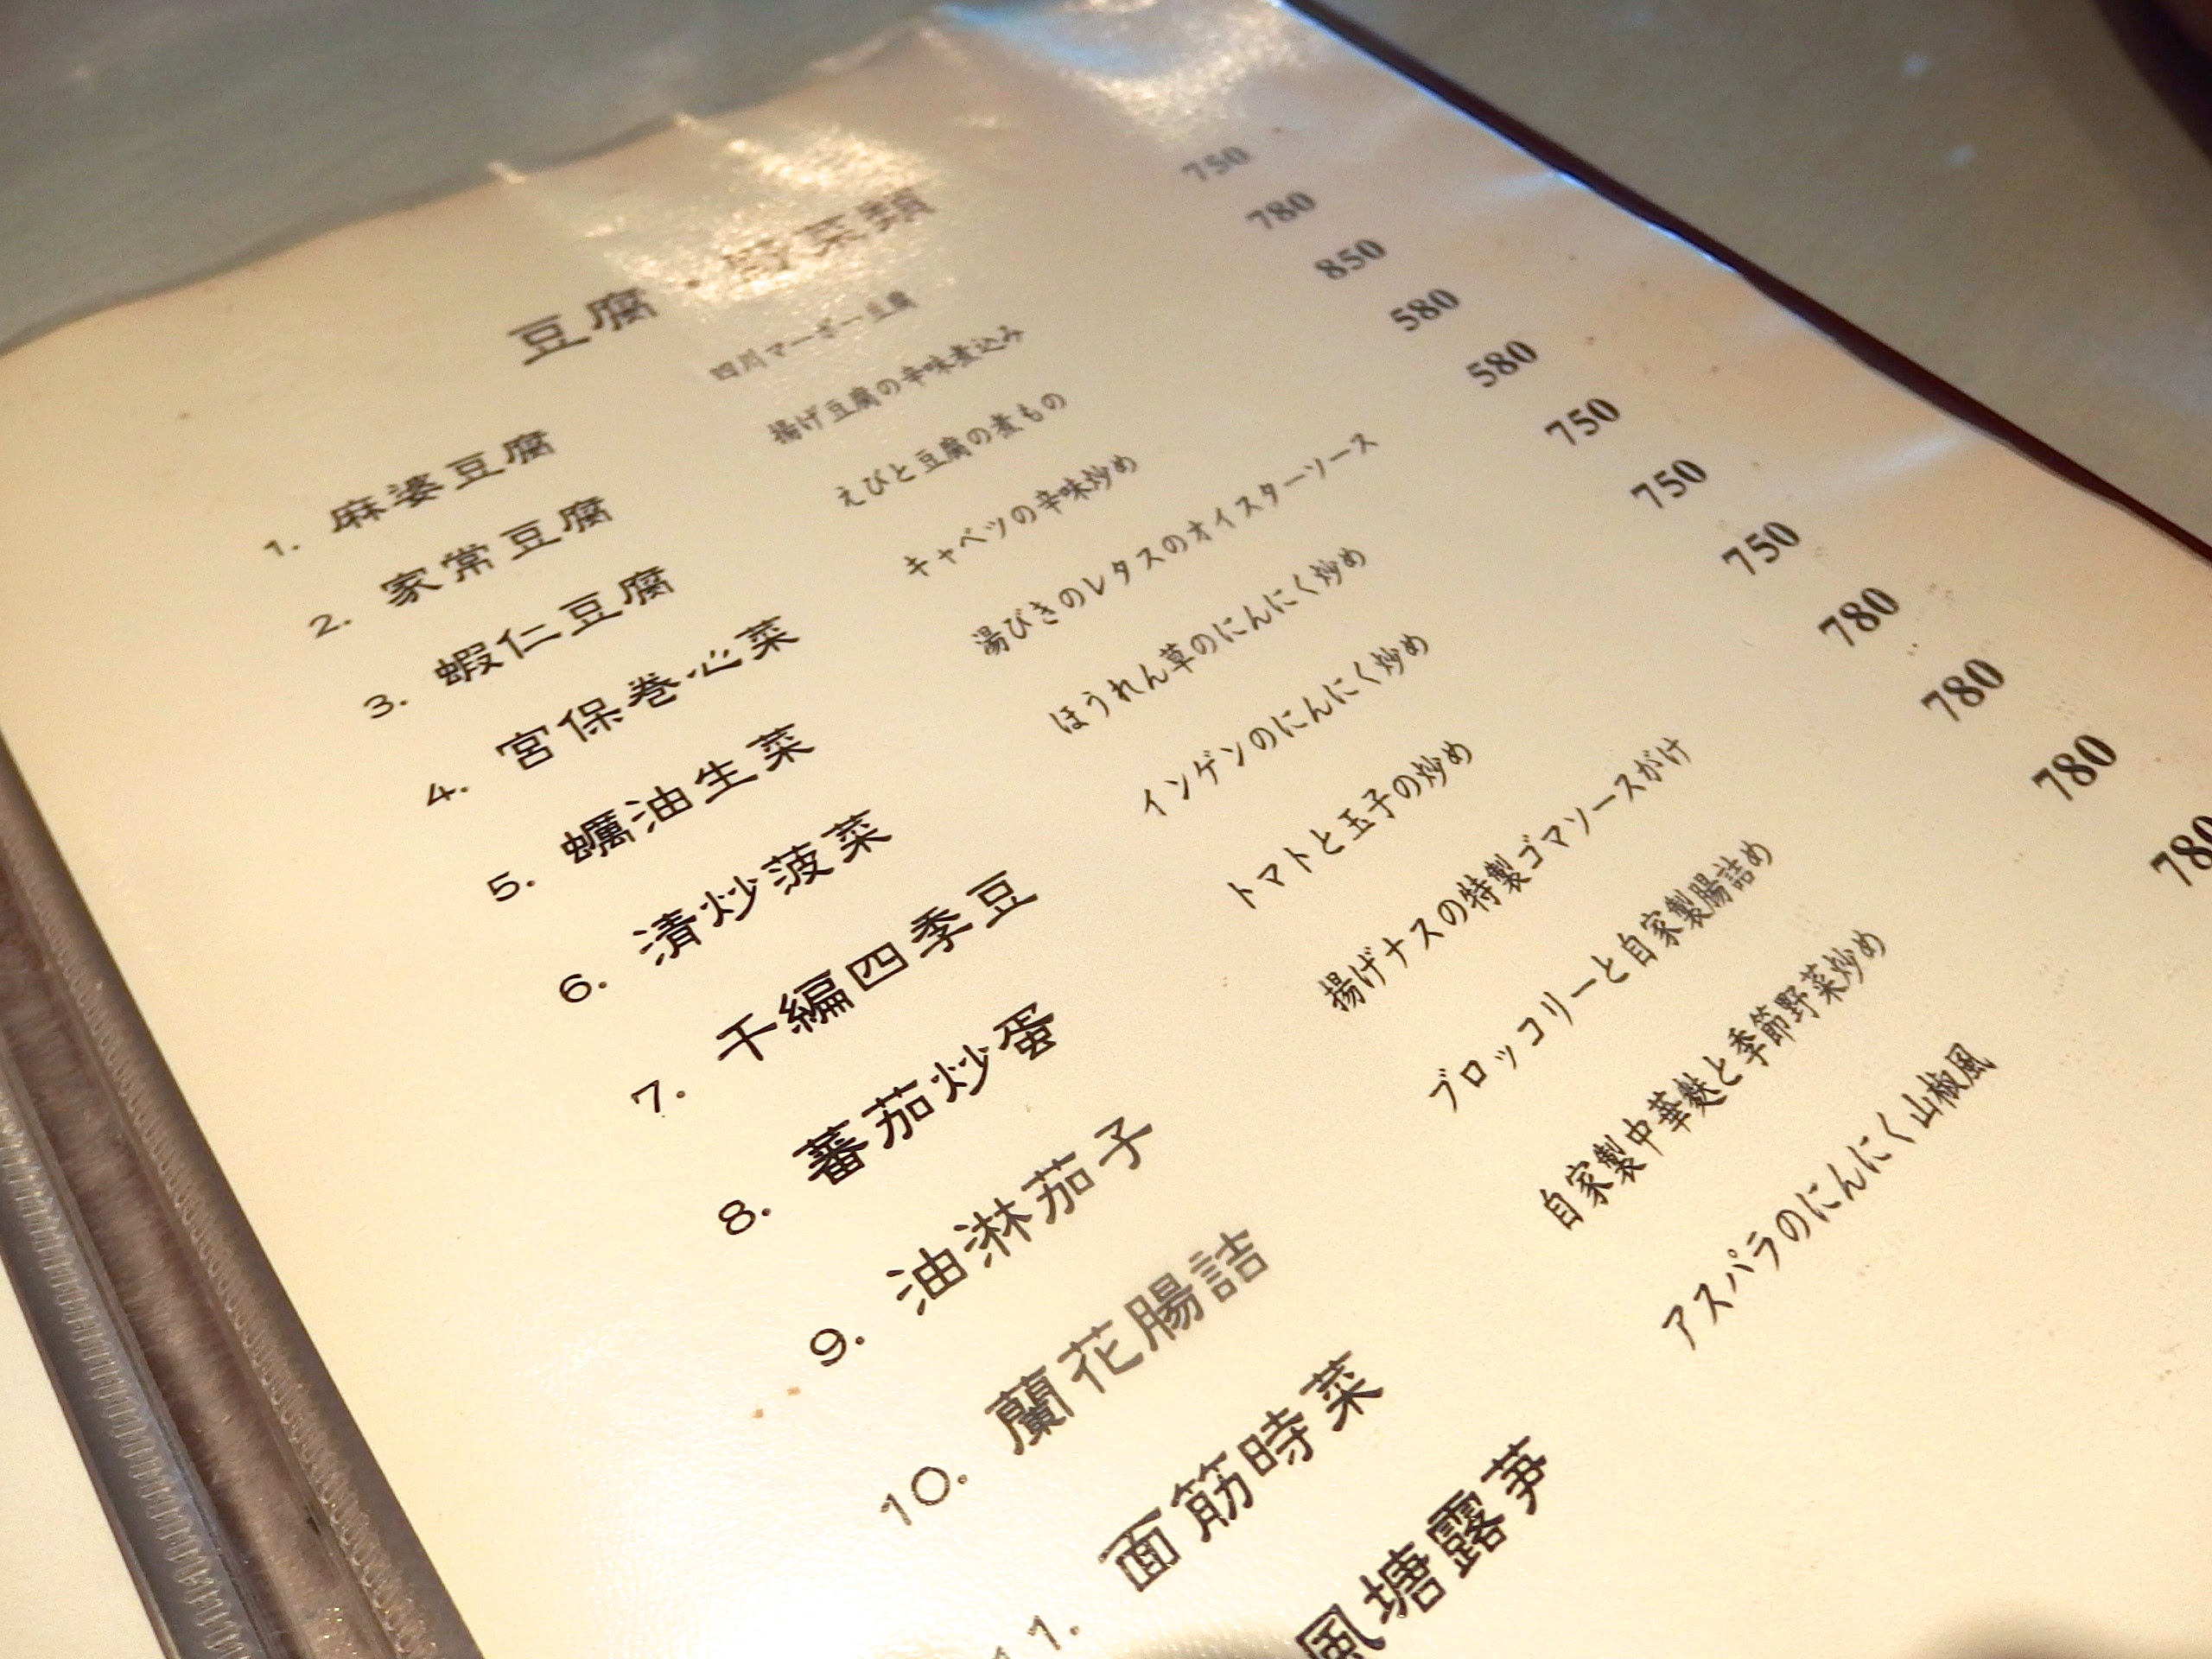 豆腐・野菜類
1. 麻婆豆腐 四川マーボー豆腐 750
2. 家常豆腐 揚げ豆腐の辛味煮込み 780
3. 蝦仁豆腐 えびと豆腐の煮もの 850
4. 宮保巻心菜 キャベツの辛味炒め 580
5. 蠣油生菜 湯びきのレタスのオイスターソース 580
6. 清炒菠菜 ほうれん草のにんにく炒め 750
7. 干編四季豆 インゲンのにんにく炒め 750
8. 蕃茄炒蛋 トマトと玉子の炒め 750
9. 油淋茄子 揚げナスの特製ゴマソースがけ 780
10. 蘭花腸詰 ブロッコリーと自家製腸詰め 780
11. 面筋時菜 自家製中華麩と季節野菜炒め 780
風塘露芛 アスパラのにんにく山椒風 780